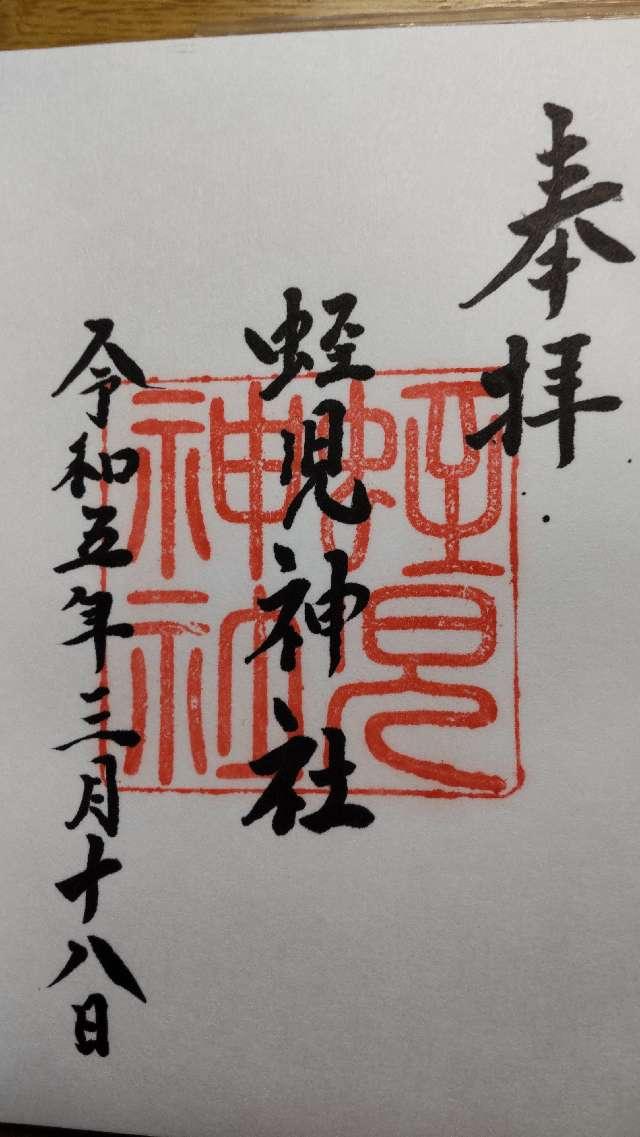 奉拝
蛭児神社
蛭児神社
令和五年三月十八日